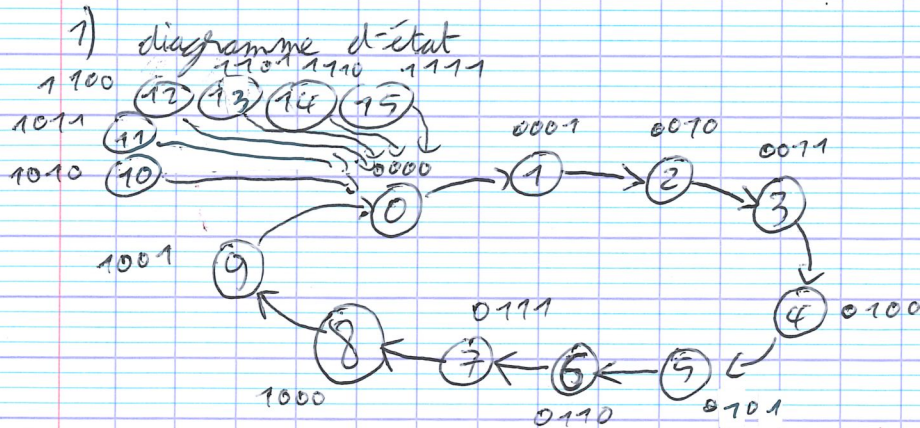 1) diagramme d'état
1100 1101 1110 1111
12 13 14 15
1011 11
1010 10
0000 0
0001 1
0010 2
0011 3
4 0100
5 0101
6 0110
7 0111
8 1000
1001 9